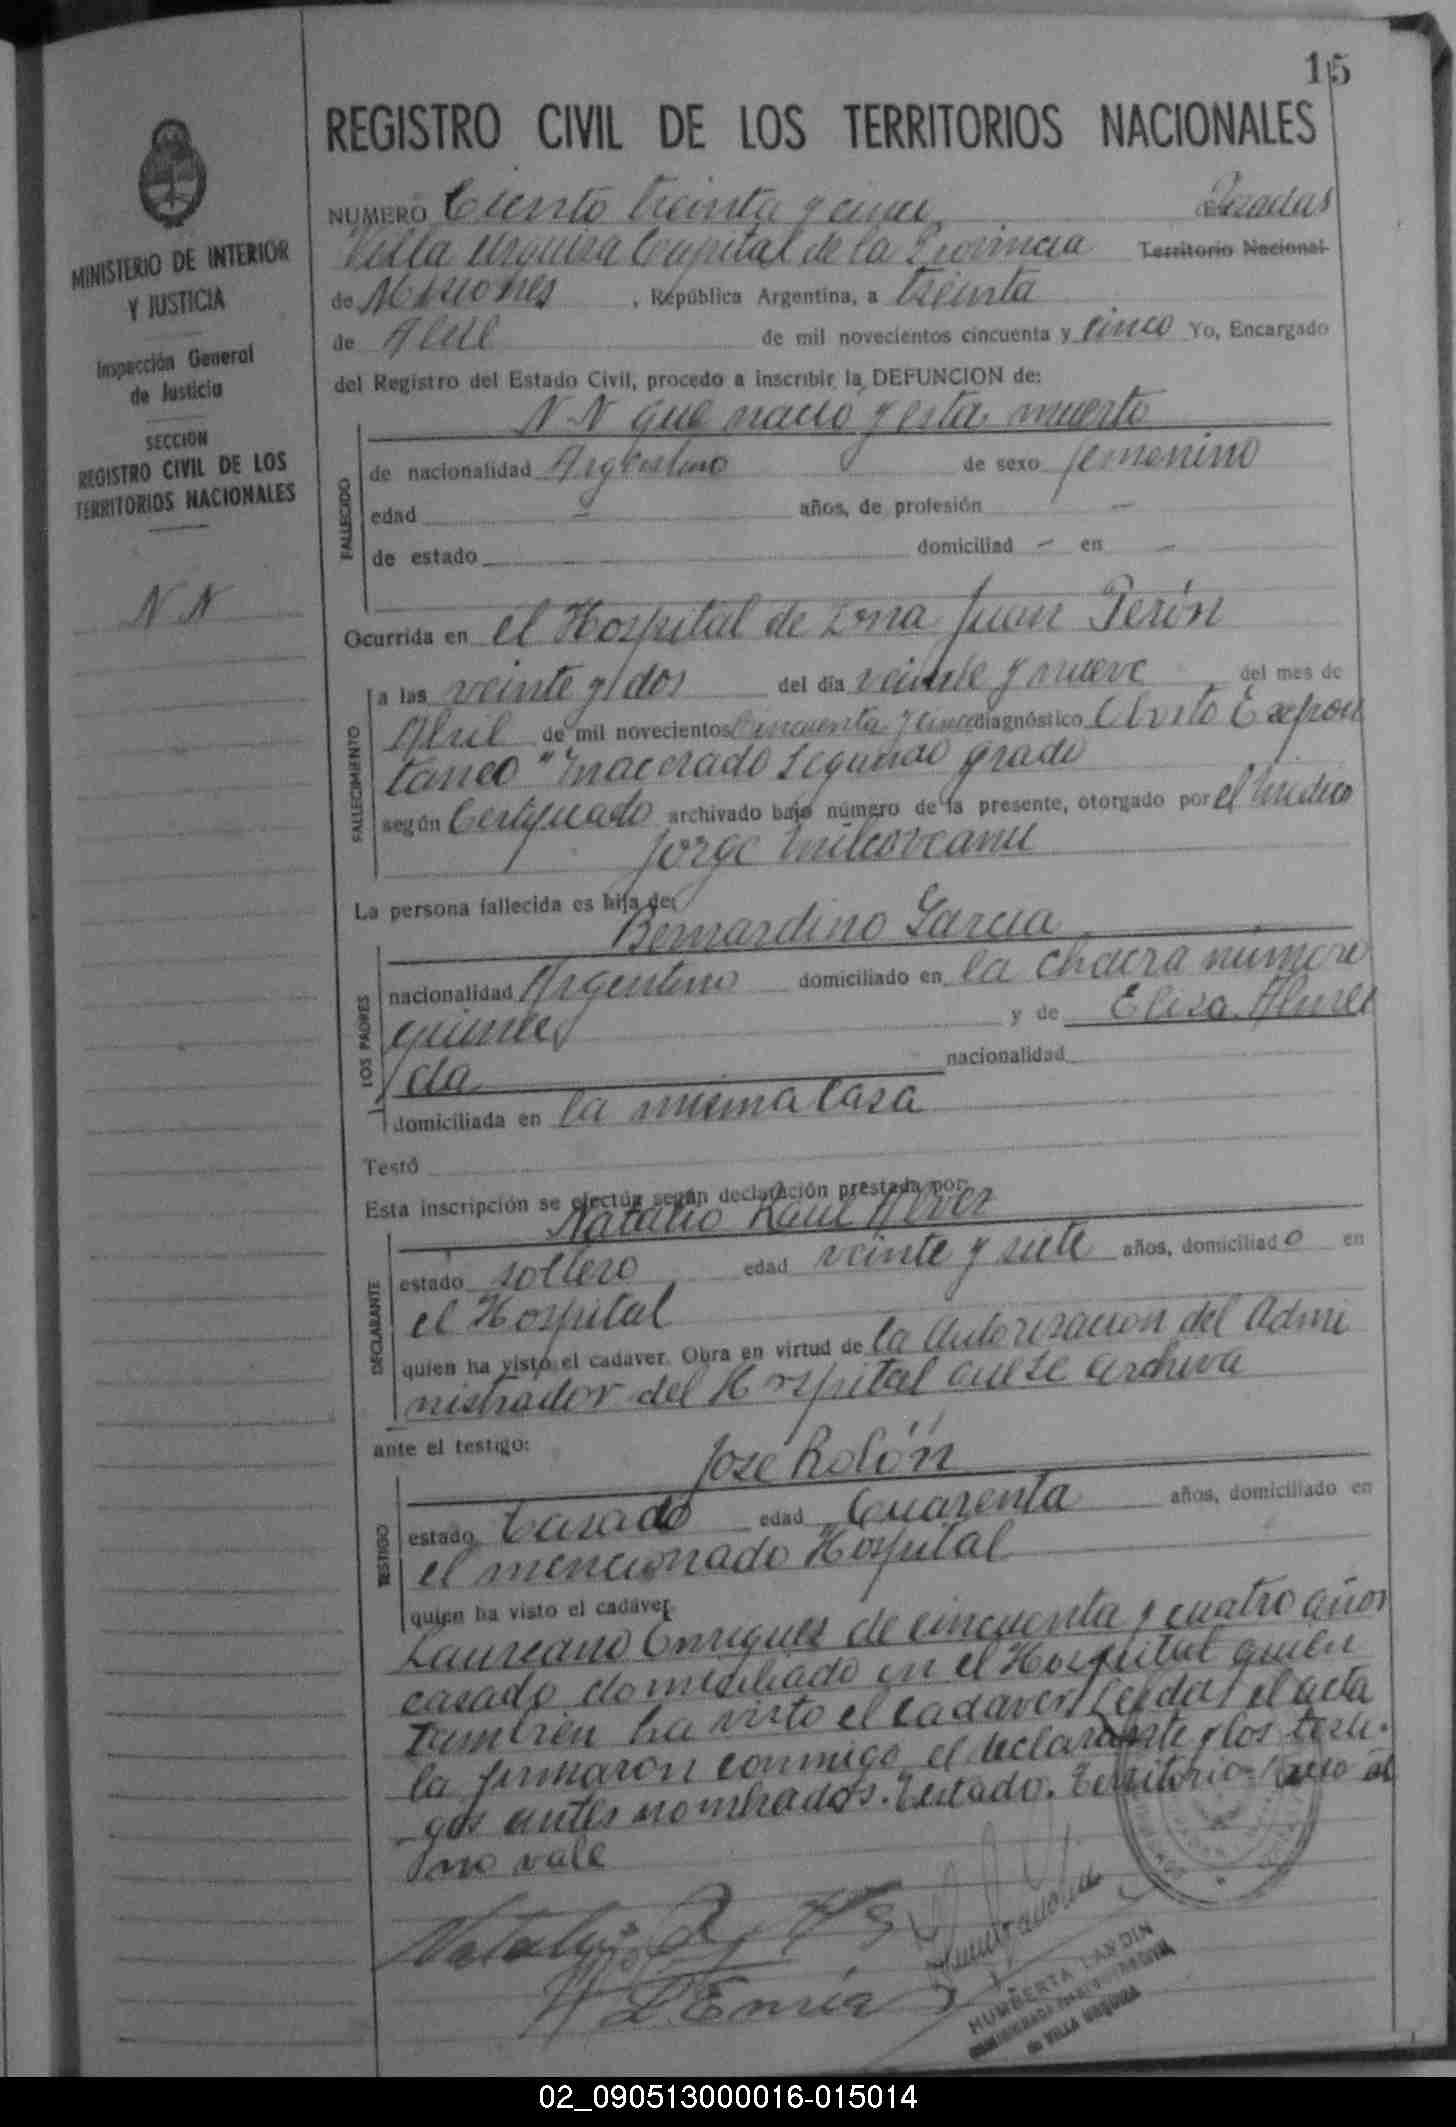 15
REGISTRO CIVIL DE LOS TERRITORIOS NACIONALES
MINISTERIO DE INTERIOR
Y JUSTICIA
Inspección General
de Justicia
SECCION
REGISTRO CIVIL DE LOS
TERRITORIOS NACIONALES
N N
NUMERO Ciento treinta y cinco Posadas
Villa Urquiza Capital de la Provincia Territorio Nacional
de Misiones, República Argentina, a treinta
de Abril de mil novecientos cincuenta y cinco Yo, Encargado
del Registro del Estado Civil, procedo a inscribir la DEFUNCION de:
N N que nació y esta muerto
FALLECIDO
de nacionalidad Argentino de sexo femenino
edad - años, de profesión -
de estado domiciliad - en -
Ocurrida en el Hospital de Zona Juan Perón
FALLECIMIENTO
a las veinte y dos del día veinte y nueve del mes de
Abril de mil novecientos cincuenta y cinco diagnóstico Aborto Expon
taneo "Macerado segundo grado
según Certificado archivado bajo número de la presente, otorgado por el Médico
Jorge Milcoveanu
La persona fallecida es hija de:
Bernardino Garcia
LOS PADRES
nacionalidad Argentino domiciliado en la chacra número
quince y de Elisa Alme
da nacionalidad
domiciliada en la misma casa
Testó
Esta inscripción se efectúa según declaración prestada por:
Natalio Raul Alvez
DECLARANTE
estado soltero edad veinte y siete años, domiciliado en
el Hospital
quien ha visto el cadaver. Obra en virtud de la autorisacion del Admi
nistrador del Hospital que se archiva
ante el testigo:
José Rolón
TESTIGO
estado Casado edad Cuarenta años, domiciliado en
el mencionado Hospital
quien ha visto el cadáver
Laureano Enriques de cincuenta y cuatro años
casado domisiliado en el Hospital quien
tambien ha visto el cadaver. Leida el acta
la firmaron conmigo el declarante y los testi-
gos antes nombrados. Testado. Territorio Nacional
no vale
HUMBERTA LANDIN
de VILLA URQUIZA
02_090513000016-015014